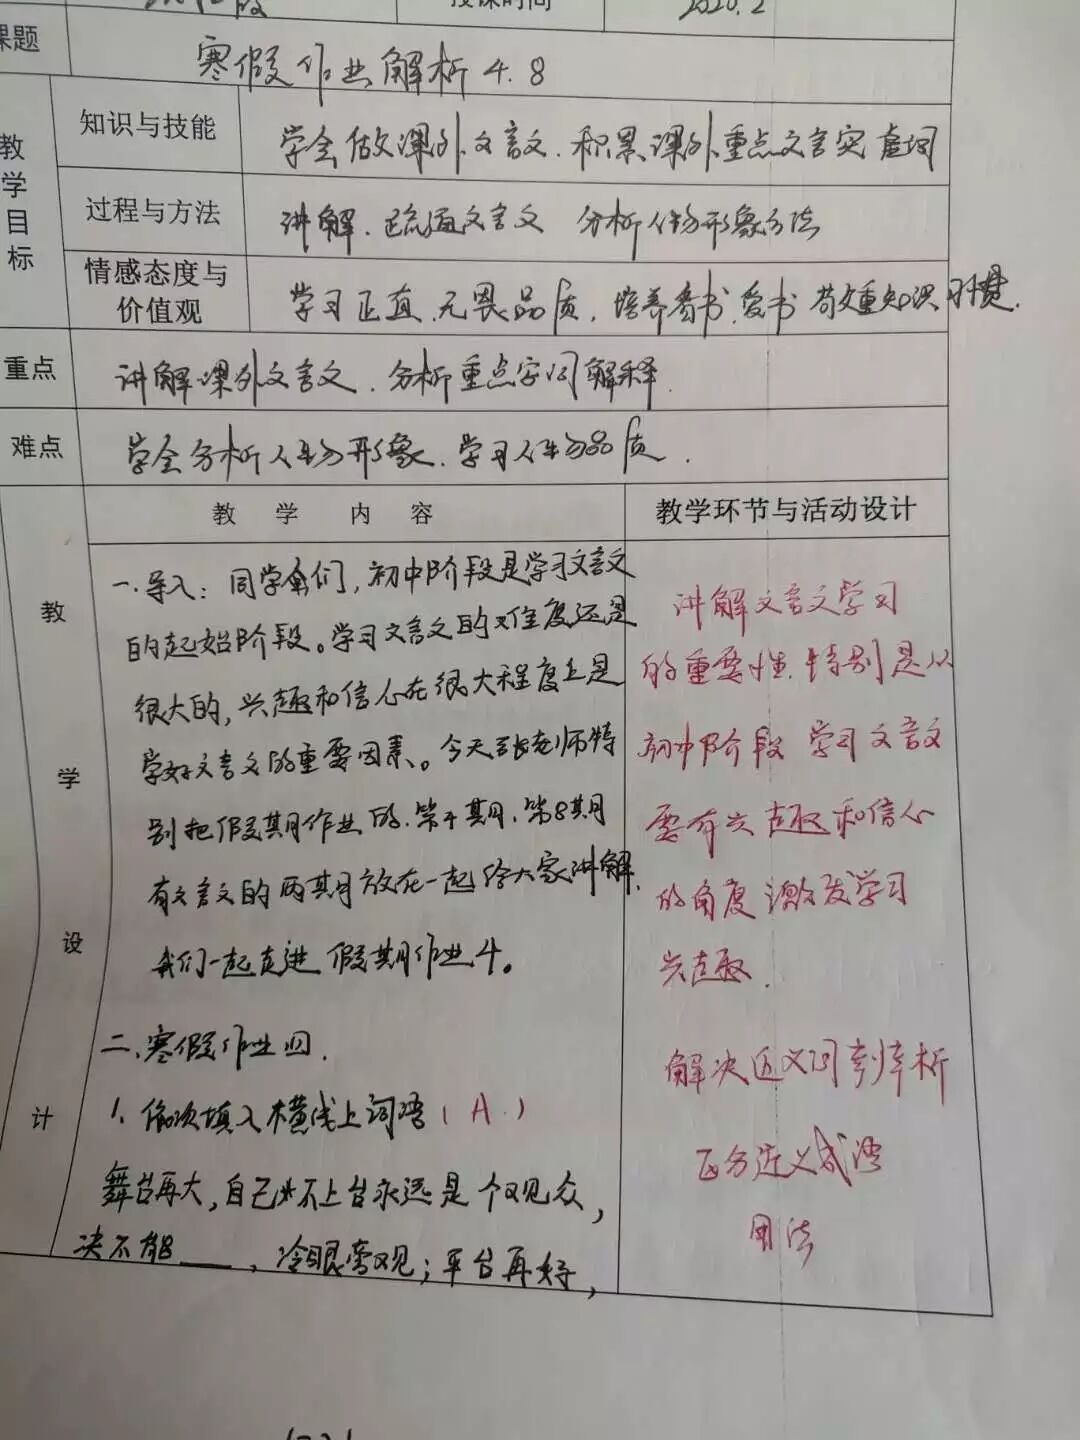 授课时间 2020.2
课题 寒假作业解析4.8
教学目标
知识与技能 学会做课外文言文、积累课外重点文言实虚词
过程与方法 讲解、疏通文言文 分析人物形象方法
情感态度与价值观 学习正直、无畏品质，培养看书、爱书 尊重知识习惯.
重点 讲解课外文言文、分析重点字词解释.
难点 学会分析人物形象、学习人物品质.
教学内容 教学环节与活动设计
教学设计
一.导入：同学们，初中阶段是学习文言文
的起始阶段。学习文言文的难度还是
很大的，兴趣和信心在很大程度上是
学好文言文的重要因素。今天张老师特
别把假期作业的、第4期、第8期
有文言文的两期放在一起给大家讲解，
我们一起走进假期作业4。
二、寒假作业四.
1、依次填入横线上词语（A.）
舞台再大，自己业不上台永远是个观众，
决不能____，冷眼旁观；平台再好，
讲解文言文学习
的重要性、特别是从
初中阶段 学习文言文
要有兴趣和信心
的角度 激发学习
兴趣.
解决近义词辨析
区分近义成语
用法